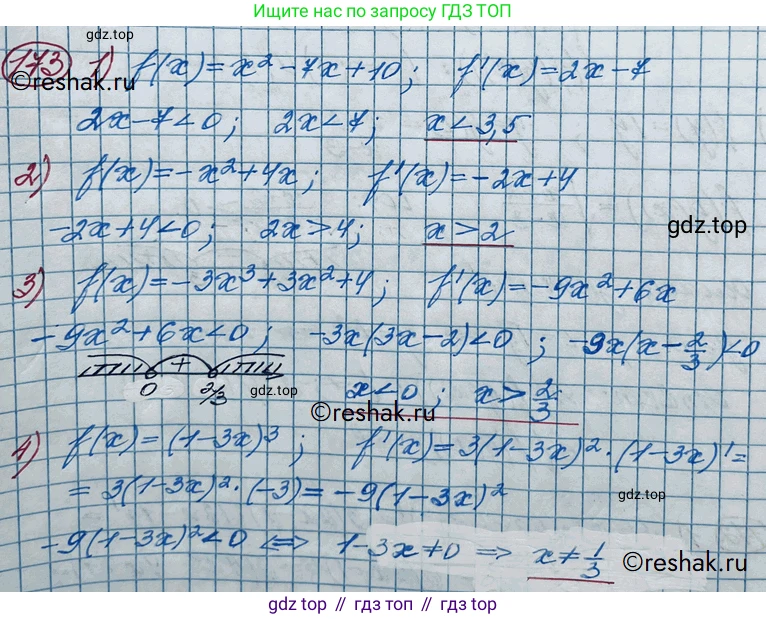 Ищите нас по запросу ГДЗ ТОП
gdz.top
173 1) f(x)=x²-7x+10; f'(x)=2x-7
©reshak.ru
2x-7<0; 2x<7; x<3,5
2) f(x)=-x²+4x; f'(x)=-2x+4
-2x+4<0; 2x>4; x>2
gdz.top
3) f(x)=-3x³+3x²+4; f'(x)=-9x²+6x
-9x²+6x<0; -3x(3x-2)<0; -9x(x-2/3)<0
+
0 2/3 gdz.top x<0; x>2/3
©reshak.ru
4) f(x)=(1-3x)³; f'(x)=3(1-3x)²·(1-3x)'=
=3(1-3x)²·(-3)=-9(1-3x)²
gdz.top
-9(1-3x)²<0 ⇔ 1-3x≠0 ⇒ x≠1/3
©reshak.ru
gdz.top // гдз топ // gdz top